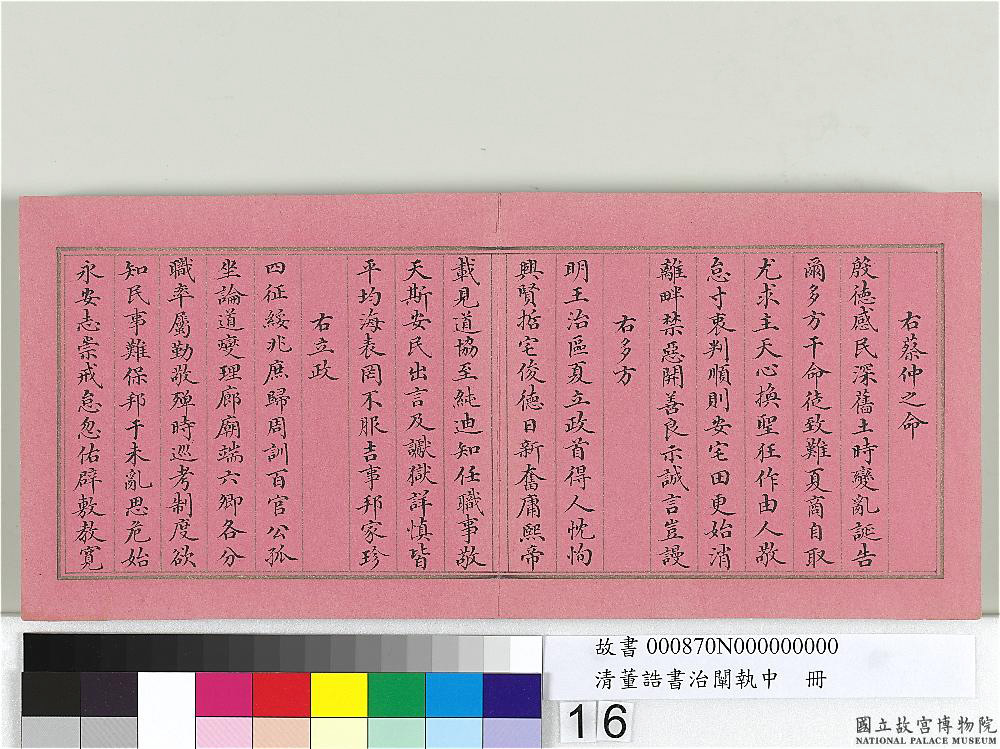 右蔡仲之命
殷徳感民深舊土時變亂誕告
爾多方干命徒致難夏商自取
尤求主天心換聖狂作由人敬
怠寸衷判順則安宅田更始消
離畔禁惡開善良示誠言豈謾
右多方
明王治區夏立政首得人忱恂
興賢哲宅俊德日新奮庸熙帝
載見道協至純迪知任職事敬
天斯安民出言及讞獄詳慎皆
平均海表罔不服吉事邦家珍
右立政
四征綏兆庶歸周訓百官公孤
坐論道變理廊廟端六卿各分
職率屬勤敬殫時巡考制度欲
知民事難保邦于未亂思危始
永安志崇戒怠忽佑辟敷教寬
故書 000870N000000000
清董誥書治闡執中 冊
16
國立故宮博物院
NATIONAL PALACE MUSEUM